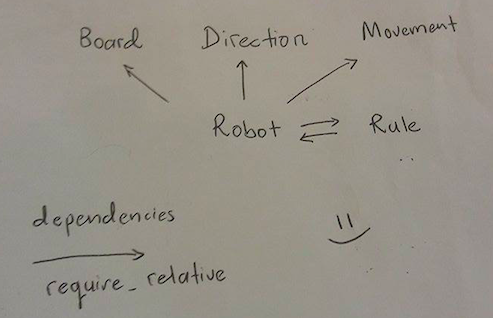 Board Direction Movement
Robot Rule
dependencies
require_relative